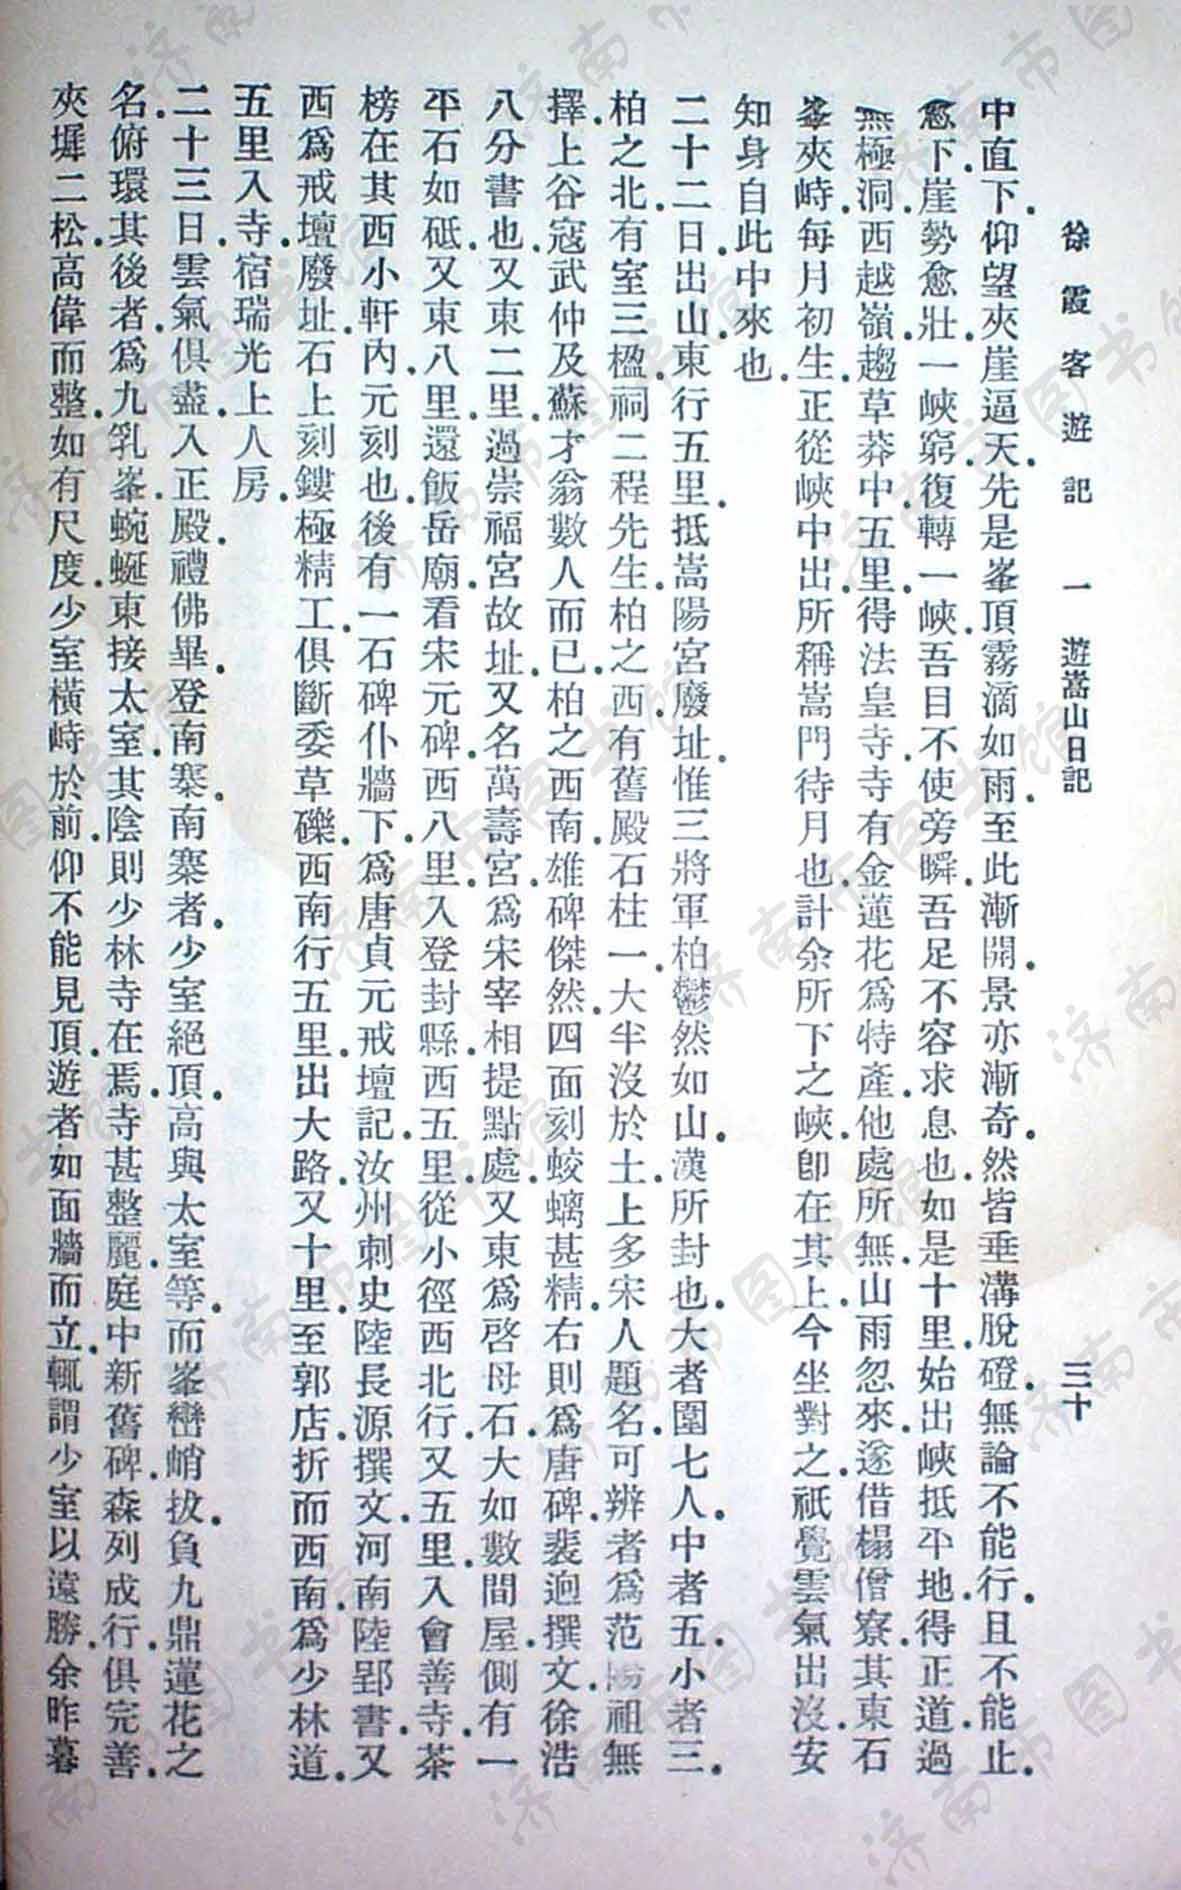 徐霞客遊記　一　遊嵩山日記　三十
中直下.仰望夾崖逼天.先是峯頂霧滴如雨.至此漸開.景亦漸奇.然皆垂溝脫磴.無論不能行.且不能止.
愈下.崖勢愈壯.一峽窮.復轉一峽.吾目不使旁瞬.吾足不容求息也.如是十里.始出峽.抵平地.得正道.過
無極洞.西越嶺.趨草莽中.五里.得法皇寺.寺有金蓮花.爲特產.他處所無.山雨忽來.遂借榻僧寮.其東石
峯夾峙.每月初生.正從峽中出.所稱嵩門待月也.計余所下之峽.卽在其上.今坐對之.祇覺雲氣出沒.安
知身自此中來也.
二十二日.出山.東行五里.抵嵩陽宮廢址.惟三將軍柏鬱然如山.漢所封也.大者圍七人.中者五.小者三.
柏之北.有室三楹.祠二程先生.柏之西.有舊殿石柱一.大半沒於土.上多宋人題名.可辨者爲范陽祖無
擇.上谷寇武仲及蘇才翁數人而已.柏之西南.雄碑傑然.四面刻蛟螭甚精.右則爲唐碑.裴迥撰文.徐浩
八分書也.又東二里.過崇福宮故址.又名萬壽宮.爲宋宰相提點處.又東爲啓母石.大如數間屋.側有一
平石如砥.又東八里.還飯岳廟.看宋元碑.西八里.入登封縣.西五里.從小徑西北行.又五里.入會善寺.茶
榜在其西小軒內.元刻也.後有一石碑仆牆下.爲唐貞元戒壇記.汝州刺史陸長源撰文.河南陸郢書.又
西爲戒壇廢址.石上刻鏤極精工.俱斷委草礫.西南行五里.出大路.又十里.至郭店.折而西南.爲少林道.
五里入寺.宿瑞光上人房.
二十三日.雲氣俱盡.入正殿.禮佛畢.登南寨.南寨者.少室絕頂.高與太室等.而峯巒峭拔.負九鼎蓮花之
名.俯環其後者.爲九乳峯.蜿蜒東接太室.其陰則少林寺在焉.寺甚整麗.庭中新舊碑.森列成行.俱完善.
夾墀二松.高偉而整.如有尺度.少室橫峙於前.仰不能見頂.遊者如面牆而立.輒謂少室以遠勝.余昨暮